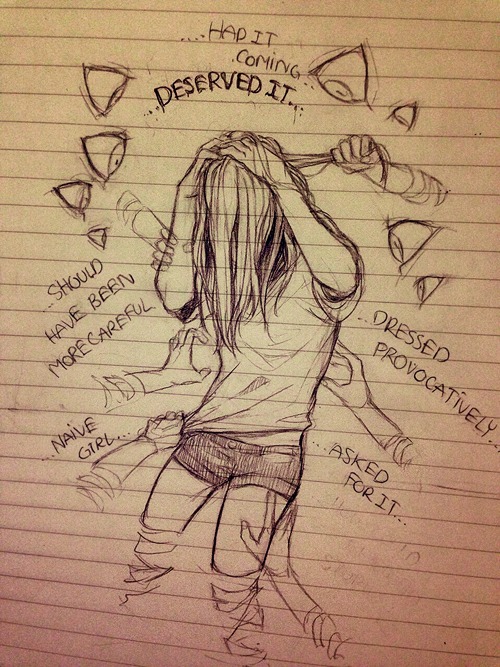 ....HAD IT
COMING..
..DESERVED IT...
..SHOULD
HAVE BEEN
MORE CAREFUL
..DRESSED
PROVOCATIVELY...
..NAIVE
GIRL...
...ASKED
FOR IT...